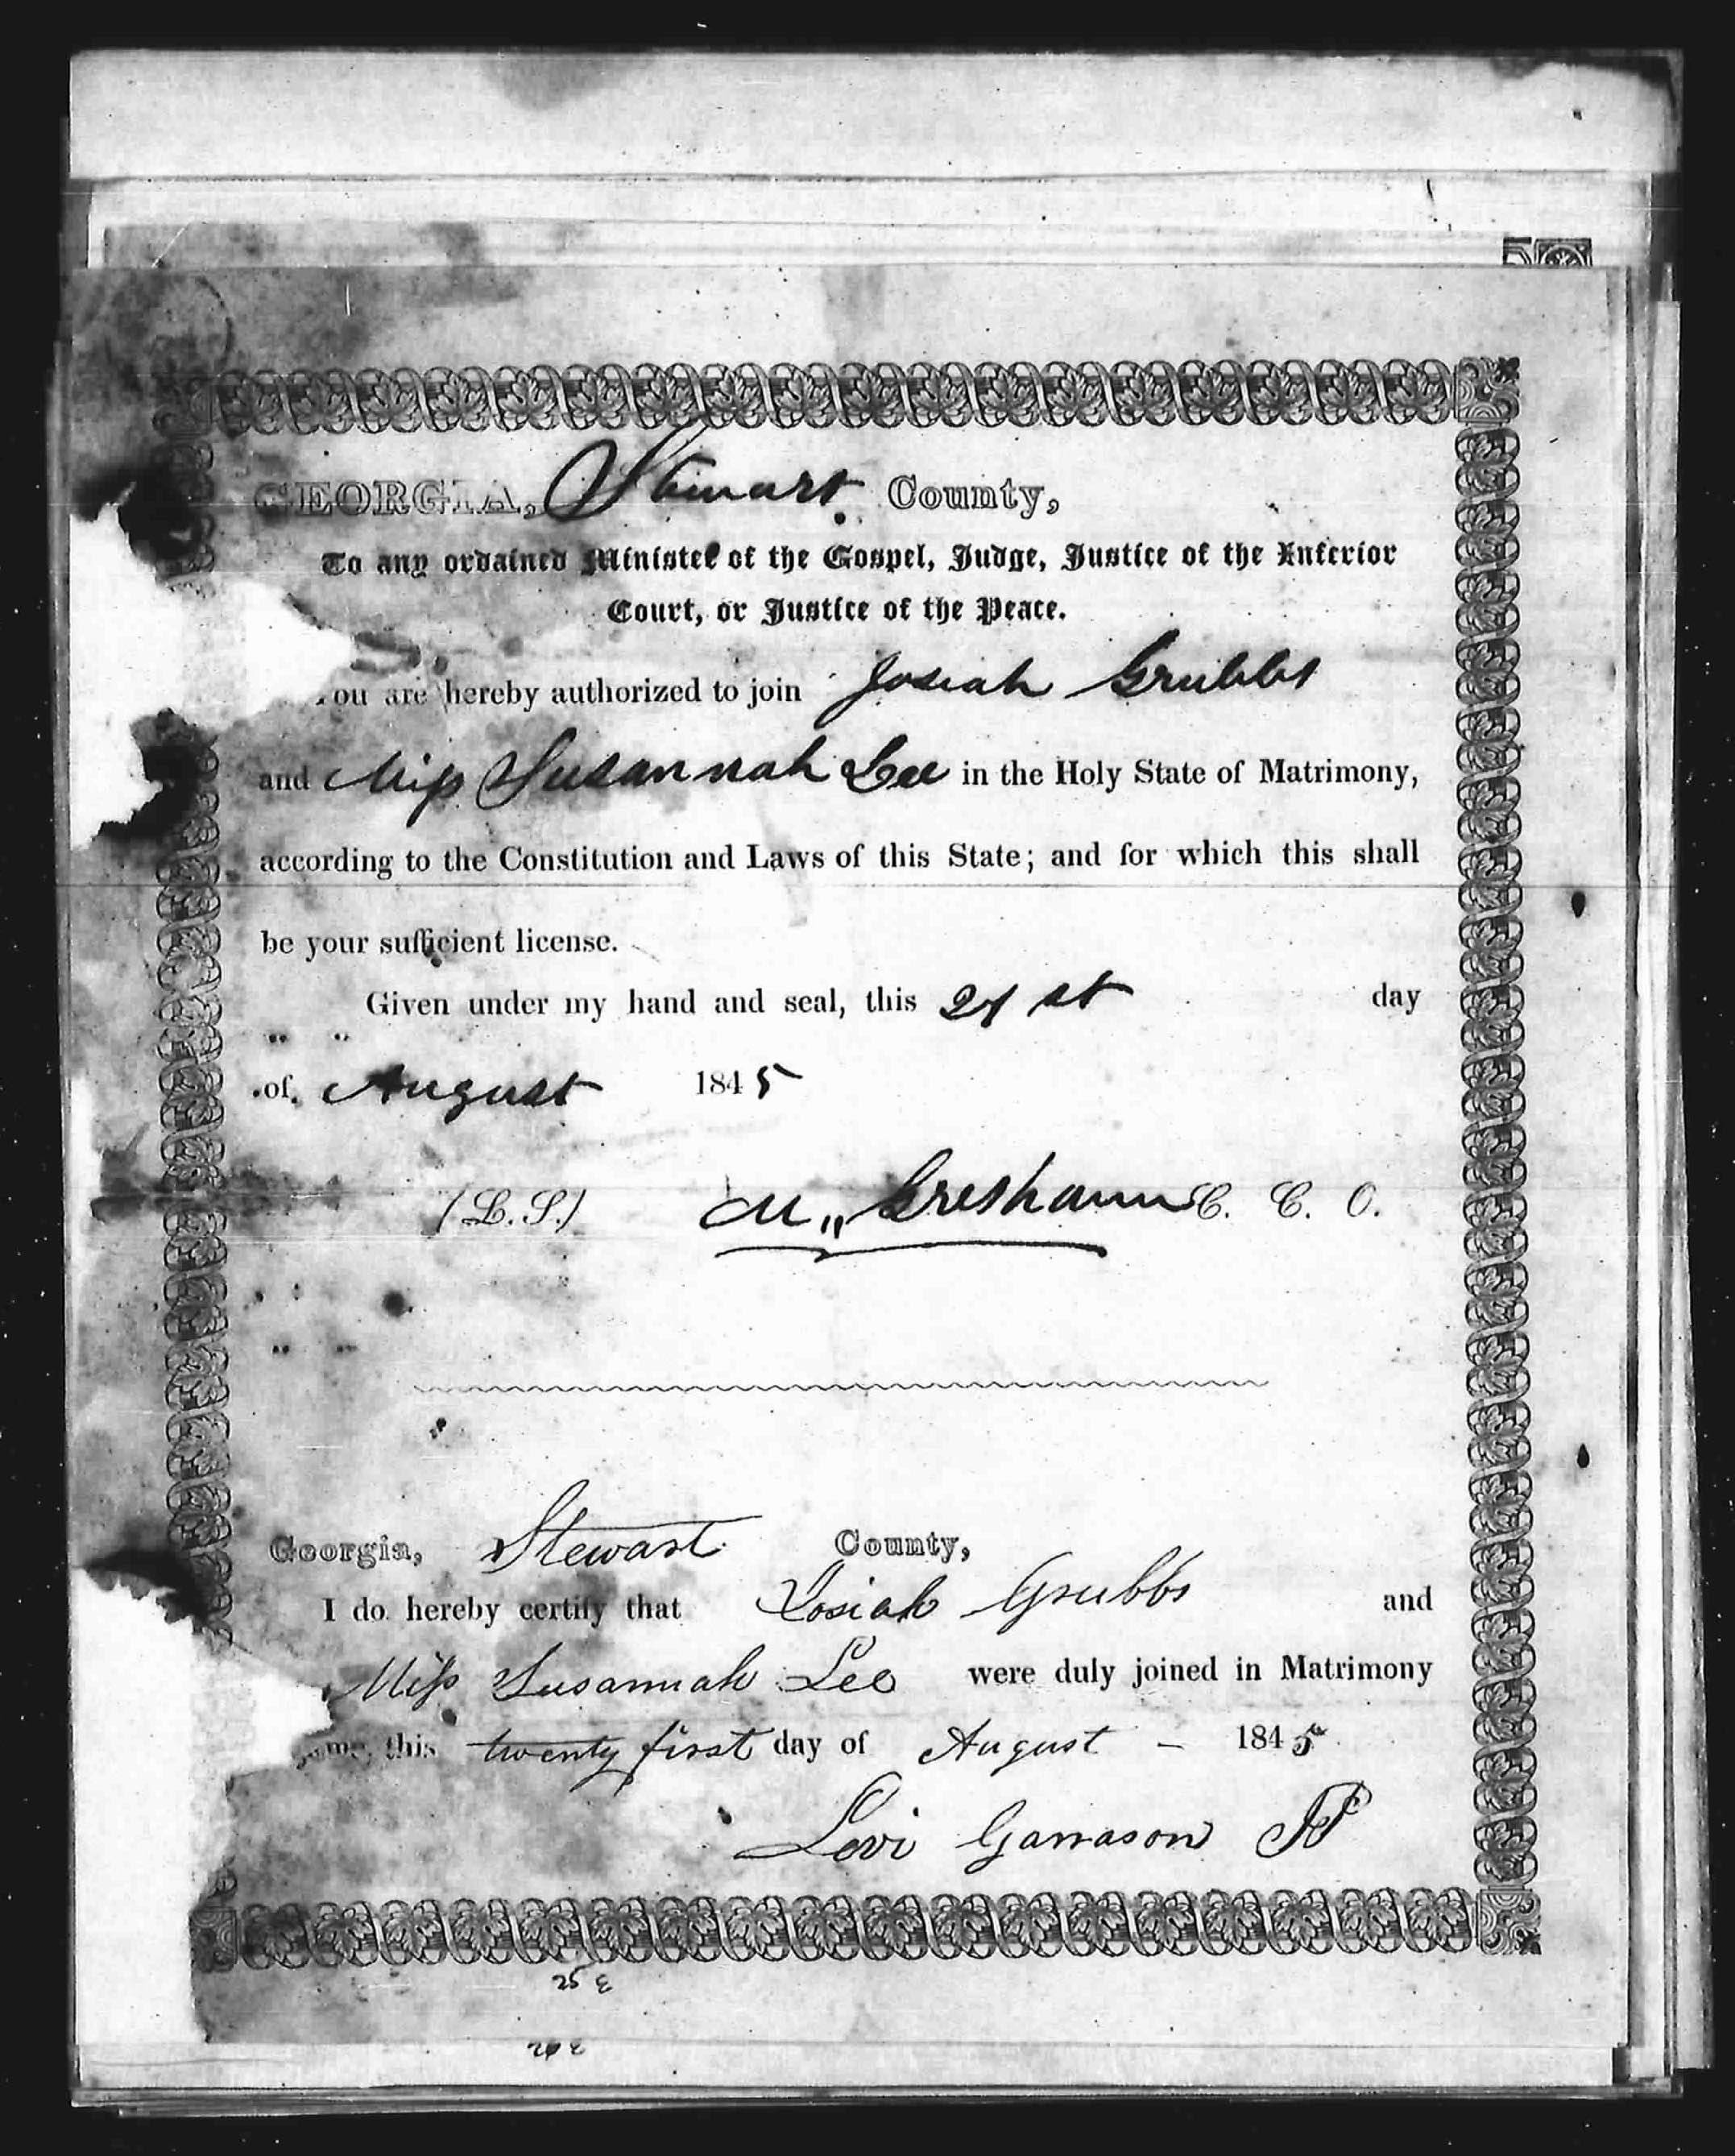 GEORGIA, Stewart County,
To any ordained Minister of the Gospel, Judge, Justice of the Inferior
Court, or Justice of the Peace.
You are hereby authorized to join Josiah Grubbs
and Miss Susannah Lee in the Holy State of Matrimony,
according to the Constitution and Laws of this State; and for which this shall
be your sufficient license.
Given under my hand and seal, this 21st day
of August 1845
(L. S.) M,, Gresham C. C. O.
Georgia, Stewart County,
I do hereby certify that Josiah Grubbs and
Miss Susannah Lee were duly joined in Matrimony
me, this twenty first day of August – 1845
Levi Garrason JP
25